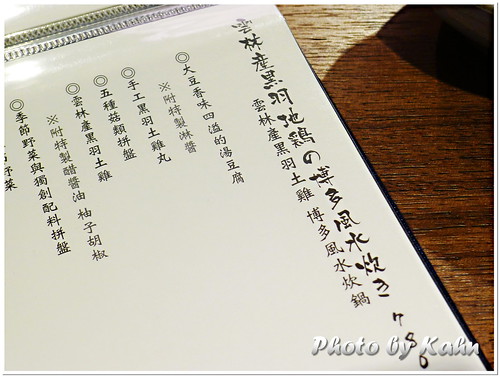 雲林産黒羽地鶏の博多風水炊き 780
雲林產黑羽土雞 博多風水炊鍋
◎大豆香味四溢的湯豆腐
※附特製淋醬
◎手工黑羽土雞丸
◎五種菇類拼盤
◎雲林產黑羽土雞
※附特製醋醬油 柚子胡椒
◎季節野菜與獨創配料拼盤
野菜
Photo by Kahn